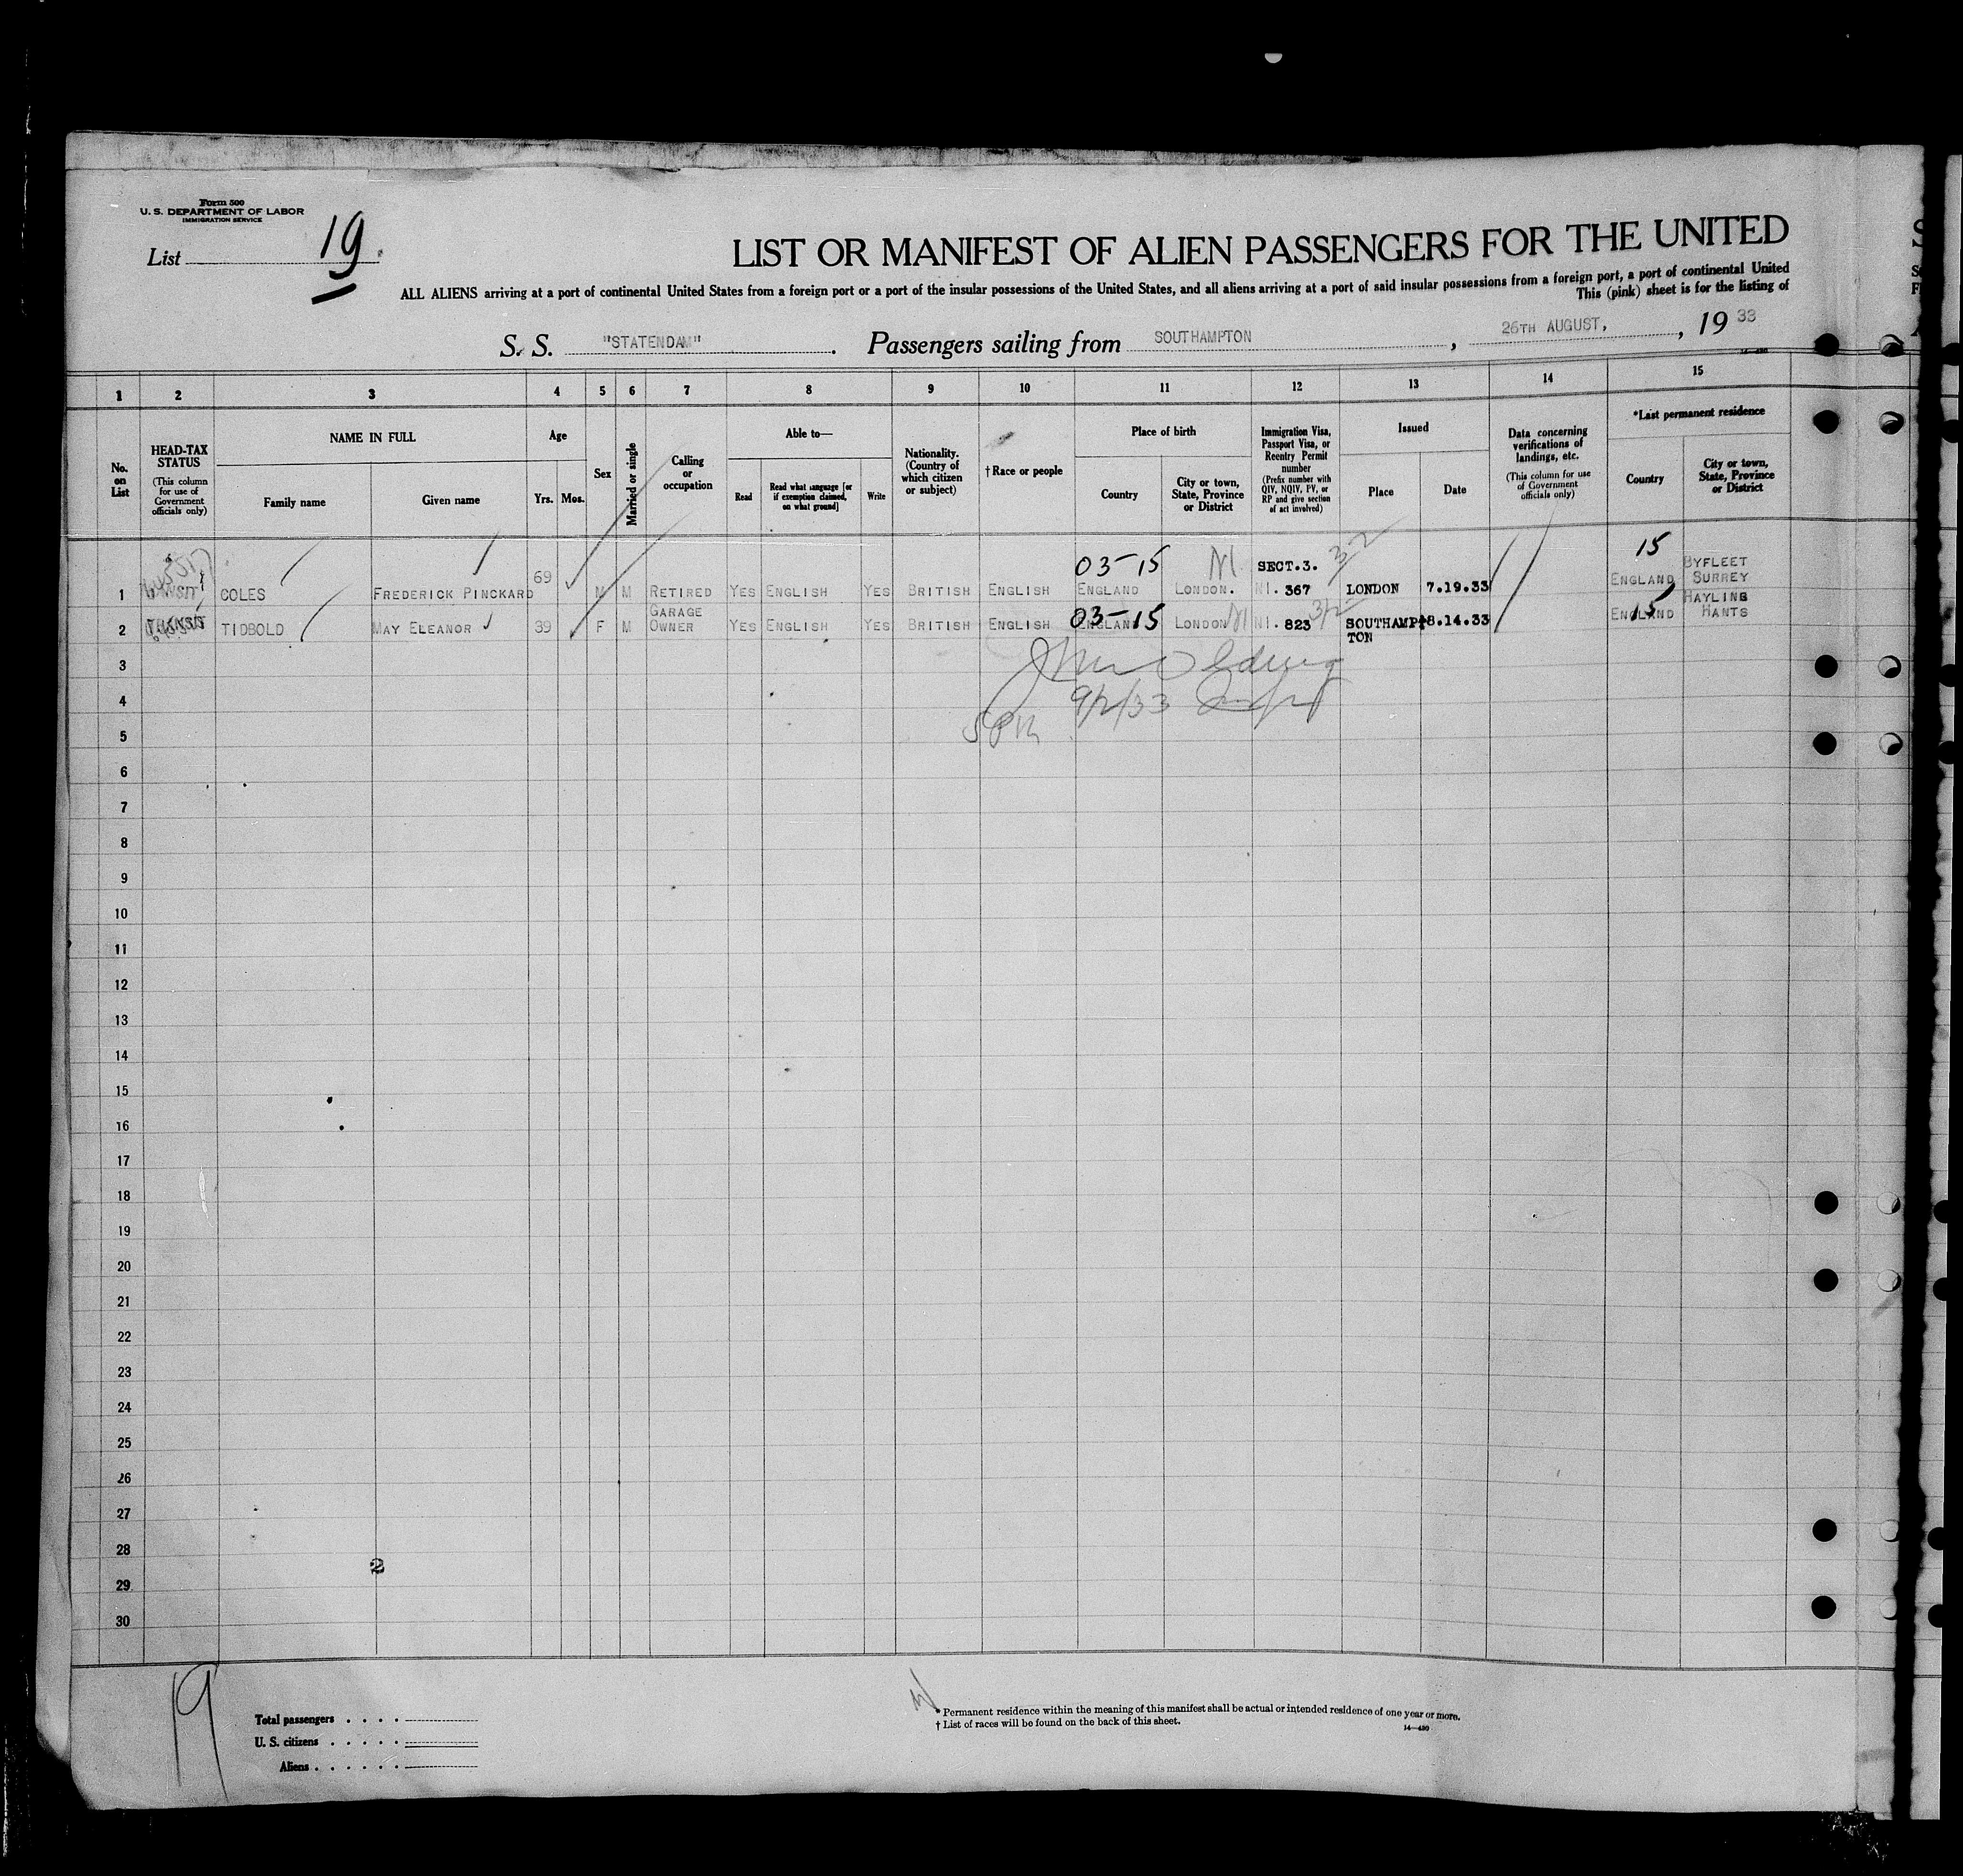 Form 500
U. S. DEPARTMENT OF LABOR
IMMIGRATION SERVICE
List 19
LIST OR MANIFEST OF ALIEN PASSENGERS FOR THE UNITED
ALL ALIENS arriving at a port of continental United States from a foreign port or a port of the insular possessions of the United States, and all aliens arriving at a port of said insular possessions from a foreign port, a port of continental United
This (pink) sheet is for the listing of
S. S. "STATENDAM". Passengers sailing from SOUTHAMPTON, 26TH AUGUST, , 19 33
14—430
1 2 3 4 5 6 7 8 9 10 11 12 13 14 15
No. on List
HEAD-TAX STATUS
(This column for use of Government officials only)
NAME IN FULL
Family name
Given name
Age
Yrs. Mos.
Sex
Married or single
Calling or occupation
Able to—
Read
Read what language [or if exemption claimed, on what ground]
Write
Nationality. (Country of which citizen or subject)
† Race or people
Place of birth
Country
City or town, State, Province or District
Immigration Visa, Passport Visa, or Reentry Permit number
(Prefix number with QIV, NQIV, PV, or RP and give section of act involved)
Issued
Place
Date
Data concerning verifications of landings, etc.
(This column for use of Government officials only)
*Last permanent residence
Country
City or town, State, Province or District
03-15 SECT.3. 32 15 BYFLEET
1 TRANSIT COLES FREDERICK PINCKARD 69 M M RETIRED YES ENGLISH YES BRITISH ENGLISH ENGLAND LONDON. 367 LONDON 7.19.33 ENGLAND SURREY
GARAGE 03-15 32 15 HAYLING
2 TRANSIT TIDBOLD MAY ELEANOR 39 F M OWNER YES ENGLISH YES BRITISH ENGLISH ENGLAND LONDON 823 SOUTHAMPTON 8.14.33 ENGLAND HANTS
3
9/2/33
4
5
6
7
8
9
10
11
12
13
14
15
16
17
18
19
20
21
22
23
24
25
26
27
28
2
29
30
19
Total passengers . . . .
U. S. citizens . . . . .
Aliens . . . . . .
* Permanent residence within the meaning of this manifest shall be actual or intended residence of one year or more.
† List of races will be found on the back of this sheet.
14—430